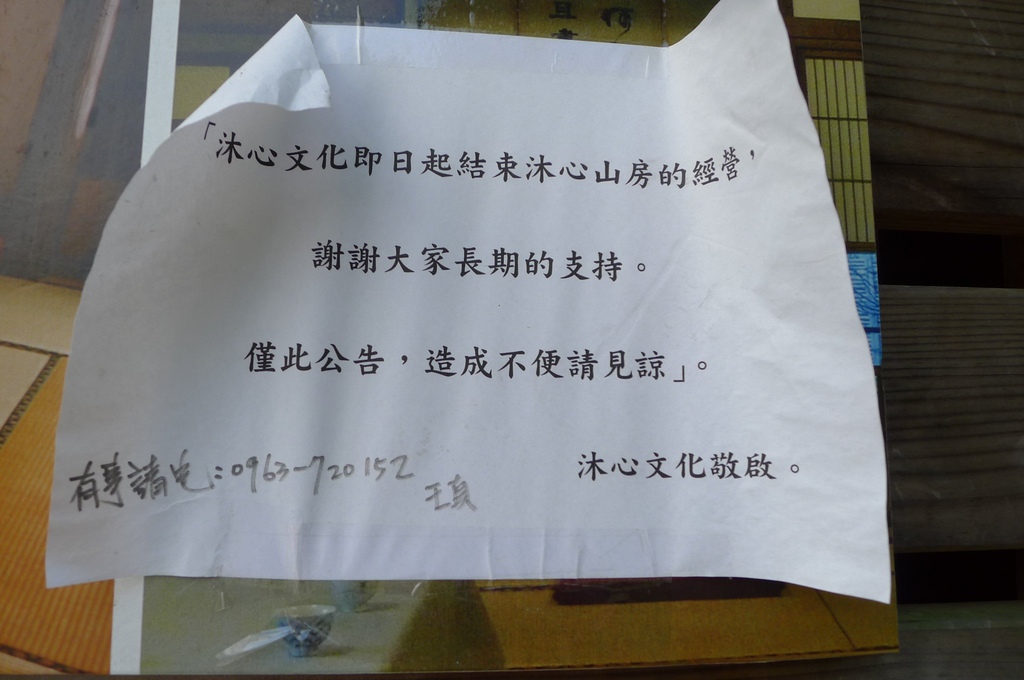 「沐心文化即日起結束沐心山房的經營，
謝謝大家長期的支持。
僅此公告，造成不便請見諒」。
沐心文化敬啟。
有事請電:0963-720152